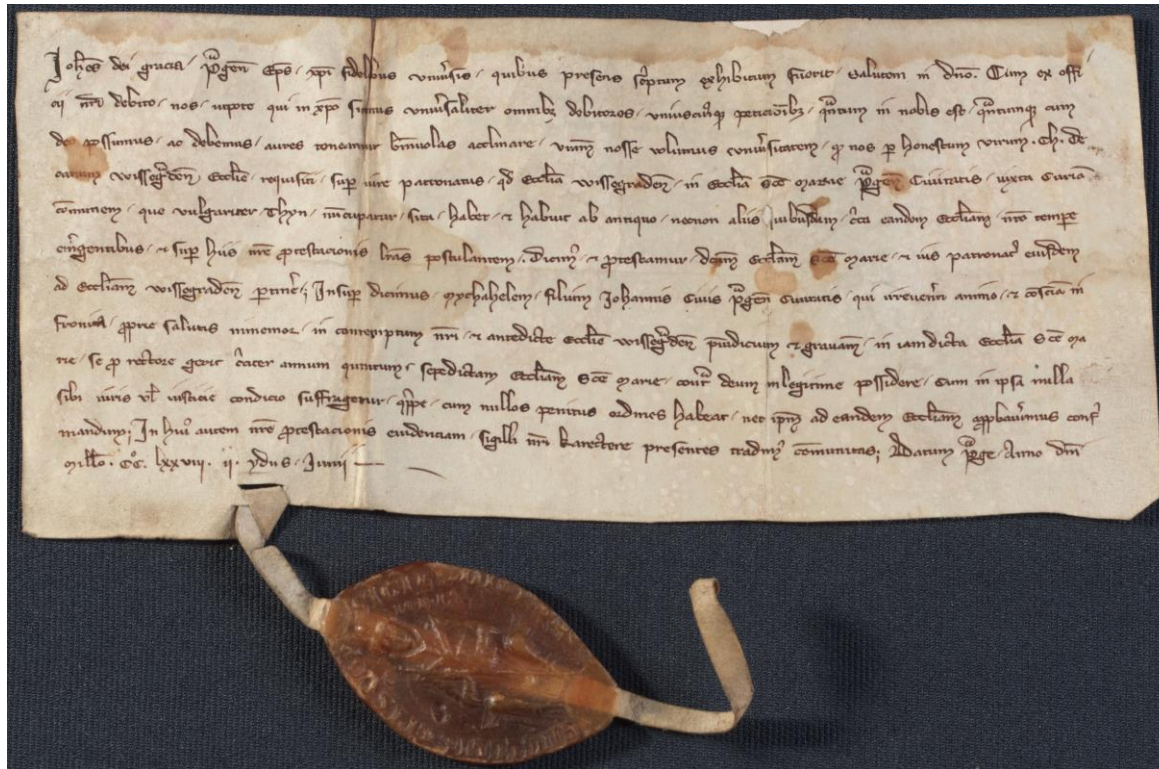 Joh̅es dei gracia · p̅gen̅ Ep̅s · xp̅i fidelibus vniu̅sis · quibus presens sc̅ptum exhibitum fuerit · salutem in dn̅o. Cum ex offi
cii nr̅i debito · nos · utpote qui in xp̅o sumus vniu̅saliter omnibȝ debitores · vniuscuiusqȝ peticio̅ibȝ · qn̅tum in nobis est · qn̅tumqȝ cum
deo possumus · ac debemus · aures teneamur beniuolas acclinare · vr̅am nosse volumus vniu̅sitatem · qd nos per honestum virum · Ch. de
canum wissegr̅den̅ Eccl̅ie · requisiti · sup̅ iure patronatus · qd Eccl̅ia wissegraden̅ · in Eccl̅ia sc̅e marie p̅gen̅ Ciuitatis · iuxta Curia̅
co̅munem · que vulgariter Thyn · nu̅cupatur · sita · habet · et habuit ab antiquo · necnon aliis iuribusdam · circa eandem Eccl̅iam · nr̅o tempe̅
emergentibus · et sup̅ hiis nr̅e p̅testacionis lr̅as postulantem · Dicim᷒ · et p̅testamur · dictam Eccl̅iam sc̅e marie · et ius patronat᷒ eiusdem
ad Eccl̅iam wissegraden̅ p̅tine̅; Insup̅ dicimus · Mychahelem · filium Johannis Ciuis p̅gen̅ Ciuitatis · qui irreuere̅ti animo · et co̅scia̅ in
fronita · p̅prie salutis inmemor · in contemptum nr̅i · et antedicte Eccl̅ie wissegr̅den̅ p̅iudicium et grauam̅ · in iam dicta Eccl̅ia sc̅e ma
rie · se p̅ rectore gerit circiter annum quintum · sepedictam Eccl̅iam sc̅e Marie · cont̅ deum inlegitime possidere · Cum in ipsa nulla
sibi iuris ul̅ iusticie condicio suffragetur · q̅ppe · cum nullos penitus ordines habeat · nec ip̅m ad eandem Eccl̅iam app̅bauimus confir
mandum; In hui᷒ autem nr̅e p̅testacionis euidenciam · sigilli nr̅i karectere presentes tradim᷒ co̅munitas; Datum p̅ge · Anno dn̅i
Mill̅o · CC̊ · lxxviii · ii · ydus · Junii